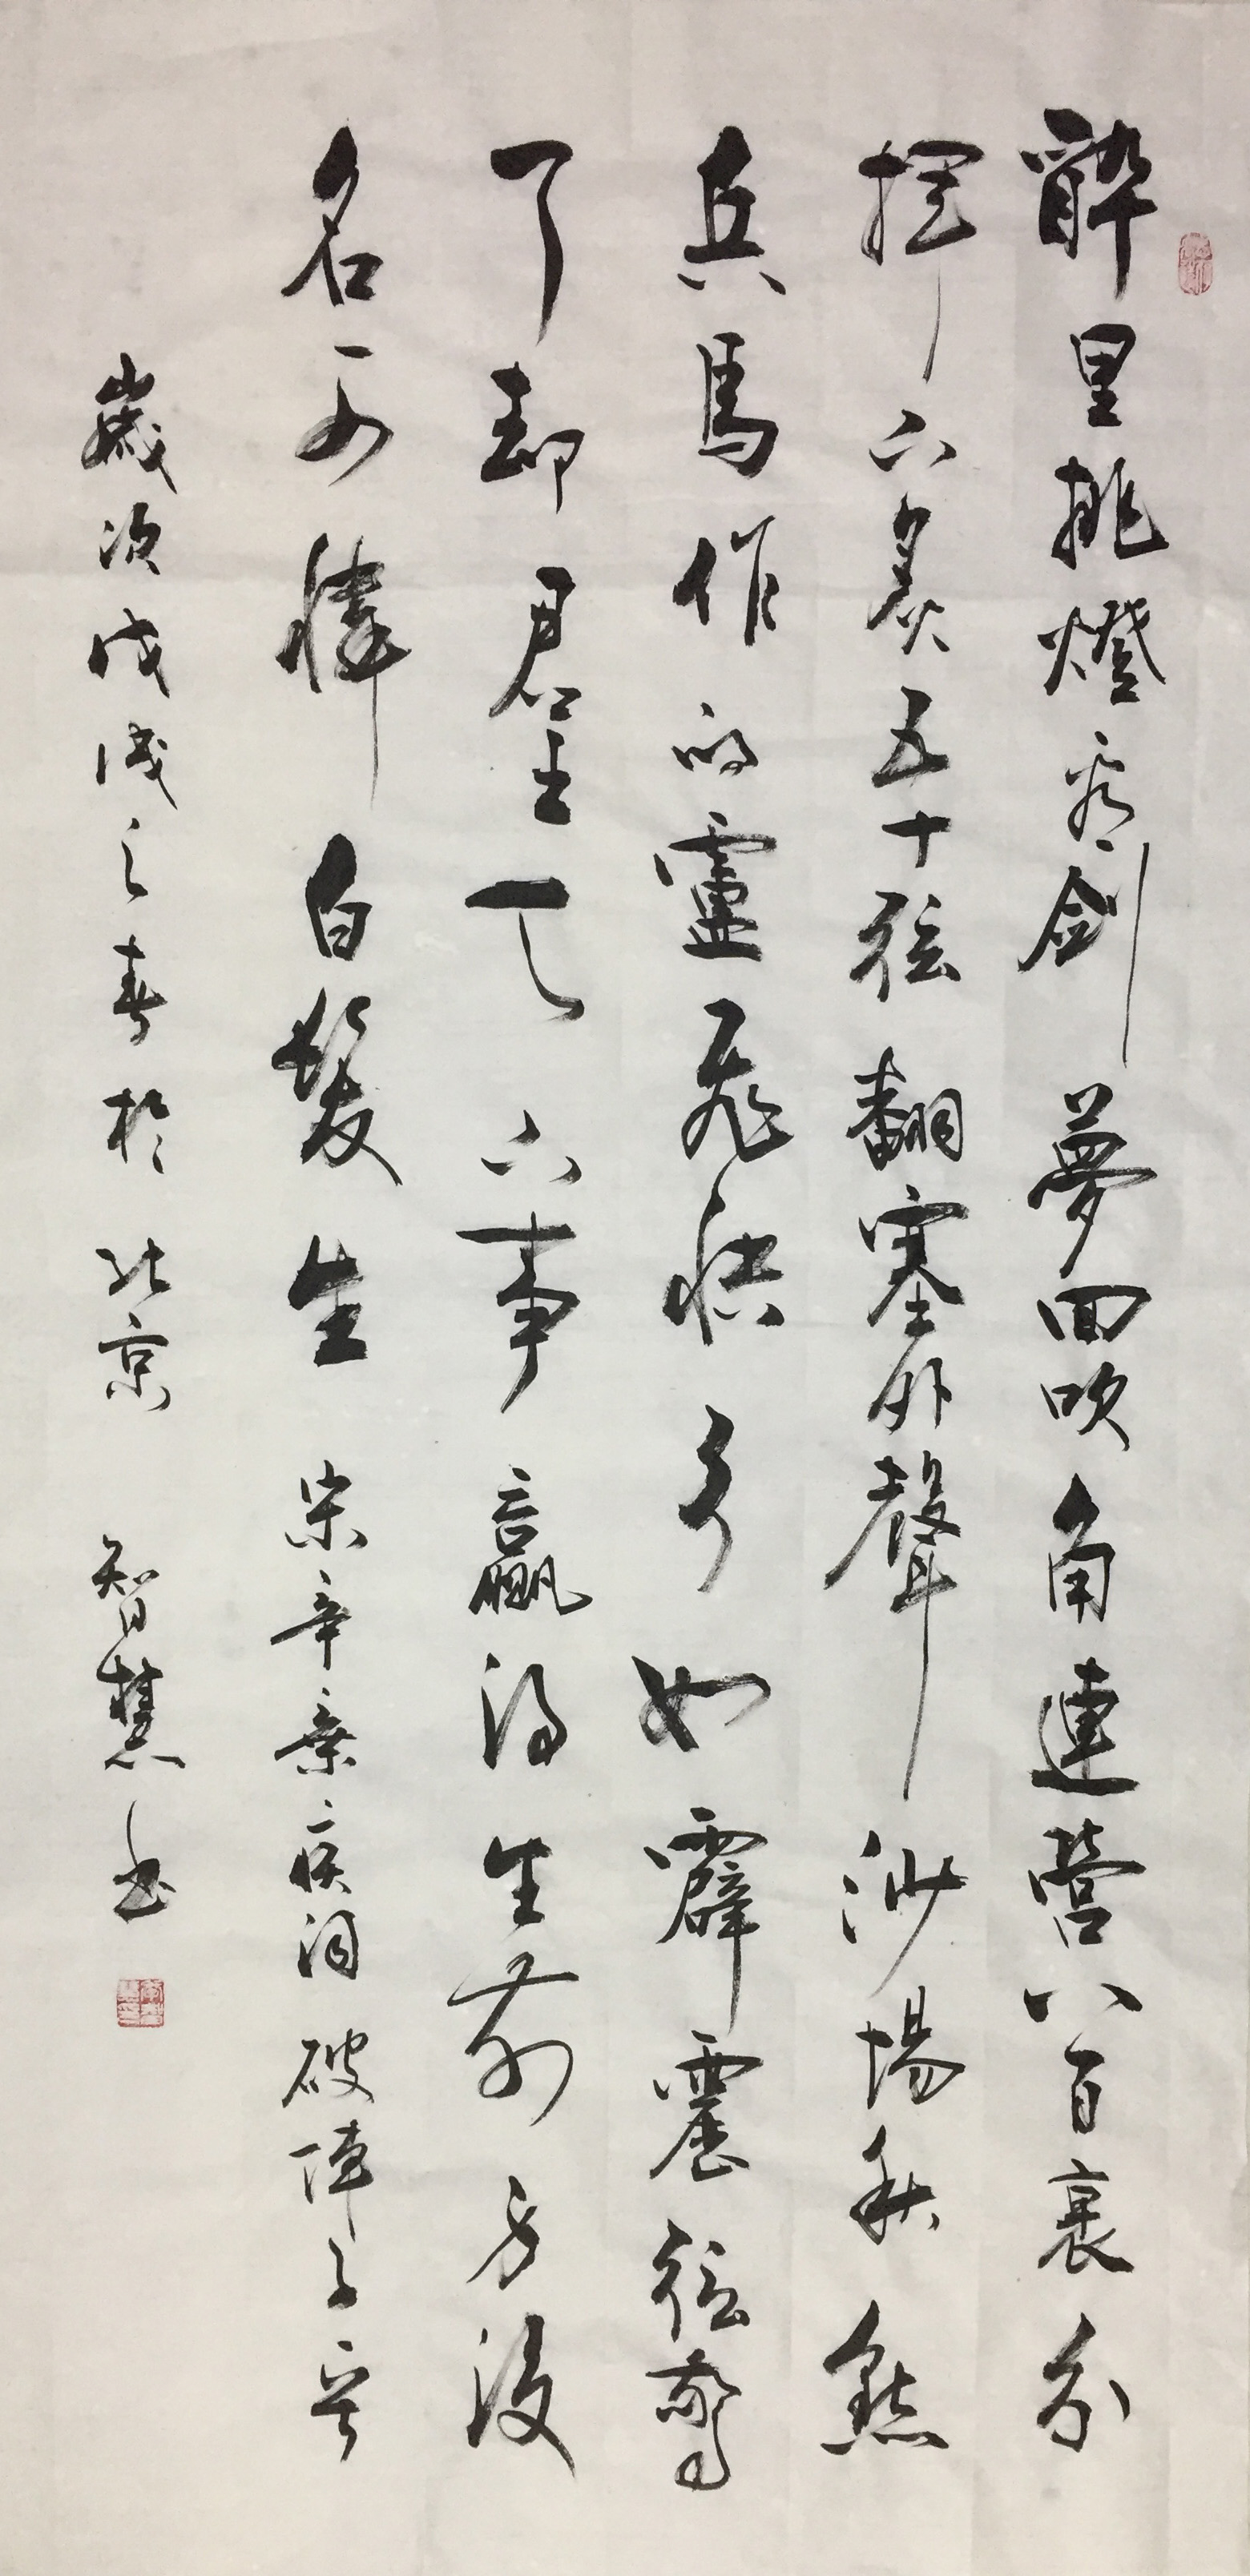 醉里挑燈看劍夢回吹角連營八百裏分
揮下炙五十弦翻塞外聲沙場秋點
兵馬作的盧飛快弓如霹靂弦驚
了却君王天下事贏得生前身後
名可憐白髮生 宋辛棄疾詞破陣子
歲次戊戌之春於北京 智慧书